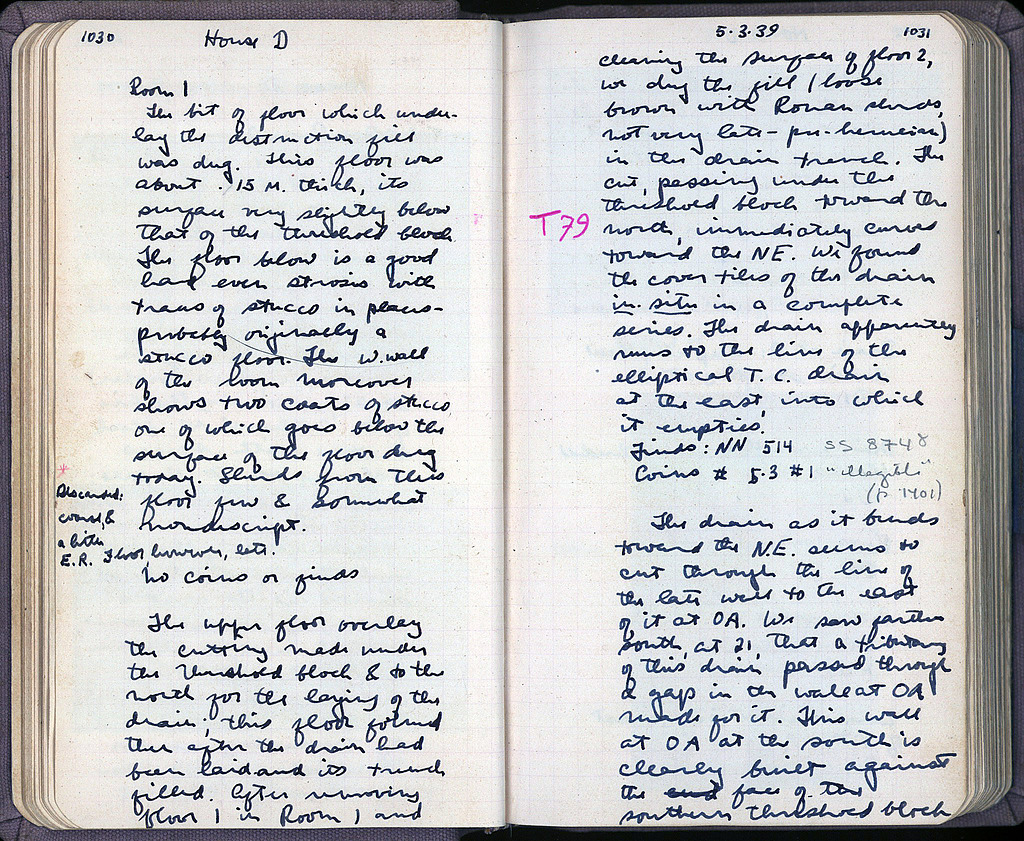 1030 House D
Room 1
The bit of floor which under-
lay the destruction fill
was dug. This floor was
about .15 M. thick, its
surface very slightly below
that of the threshold block.
The floor below is a good
hard even strosis with
traces of stucco in places-
probably originally a
stucco floor. The W. wall
of the room moreover
shows two coats of stucco,
one of which goes below the
surface of the floor dug
today. Sherds from this
floor few & somewhat
nondescript.
Discarded:
coarse, &
a little
E.R. Floor, however, late.
No coins or finds
The upper floor overlay
the cutting made under
the threshold block & to the
north for the laying of the
drain; this floor formed
then after the drain had
been laid and its trench
filled. After removing
floor 1 in Room 1 and
5·3·39 1031
cleaning the surface of floor 2,
we dug the fill (loose
brown with Roman sherds,
not very late - pre-herulian)
in the drain trench. The
cut, passing under the
threshold block toward the
T79
north, immediately curves
toward the NE. We found
the cover tiles of the drain
in situ in a complete
series. The drain apparently
runs to the line of the
elliptical T.C. drain
at the east, into which
it empties.
Finds: NN 514 SS 8748
Coins # 5·3 #1 "illegible"
(p 1401)
The drain as it bends
toward the N.E. seems to
cut through the line of
the late wall to the east
of it at OA. We saw farther
south, at 21, that a tributary
of this drain passed through
a gap in the wall at OA
made for it. This wall
at OA at the south is
clearly built against
the end face of the
southern threshold block